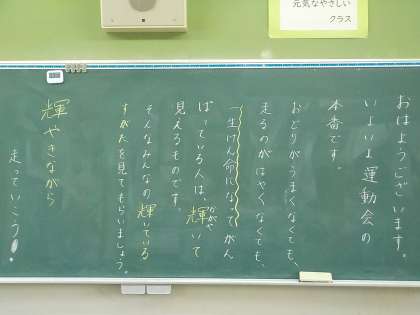 元気なやさしい
クラス
おはようございます。
いよいよ運動会の
本番です。
おどりがうまくなくても、
走るのがはやくなくても、
一生けん命になってがん
ばっている人は、輝いて
かがや
見えるものです。
そんなみんなの輝いている
すがたを見てもらいましょう。
輝やきながら
走っていこう!